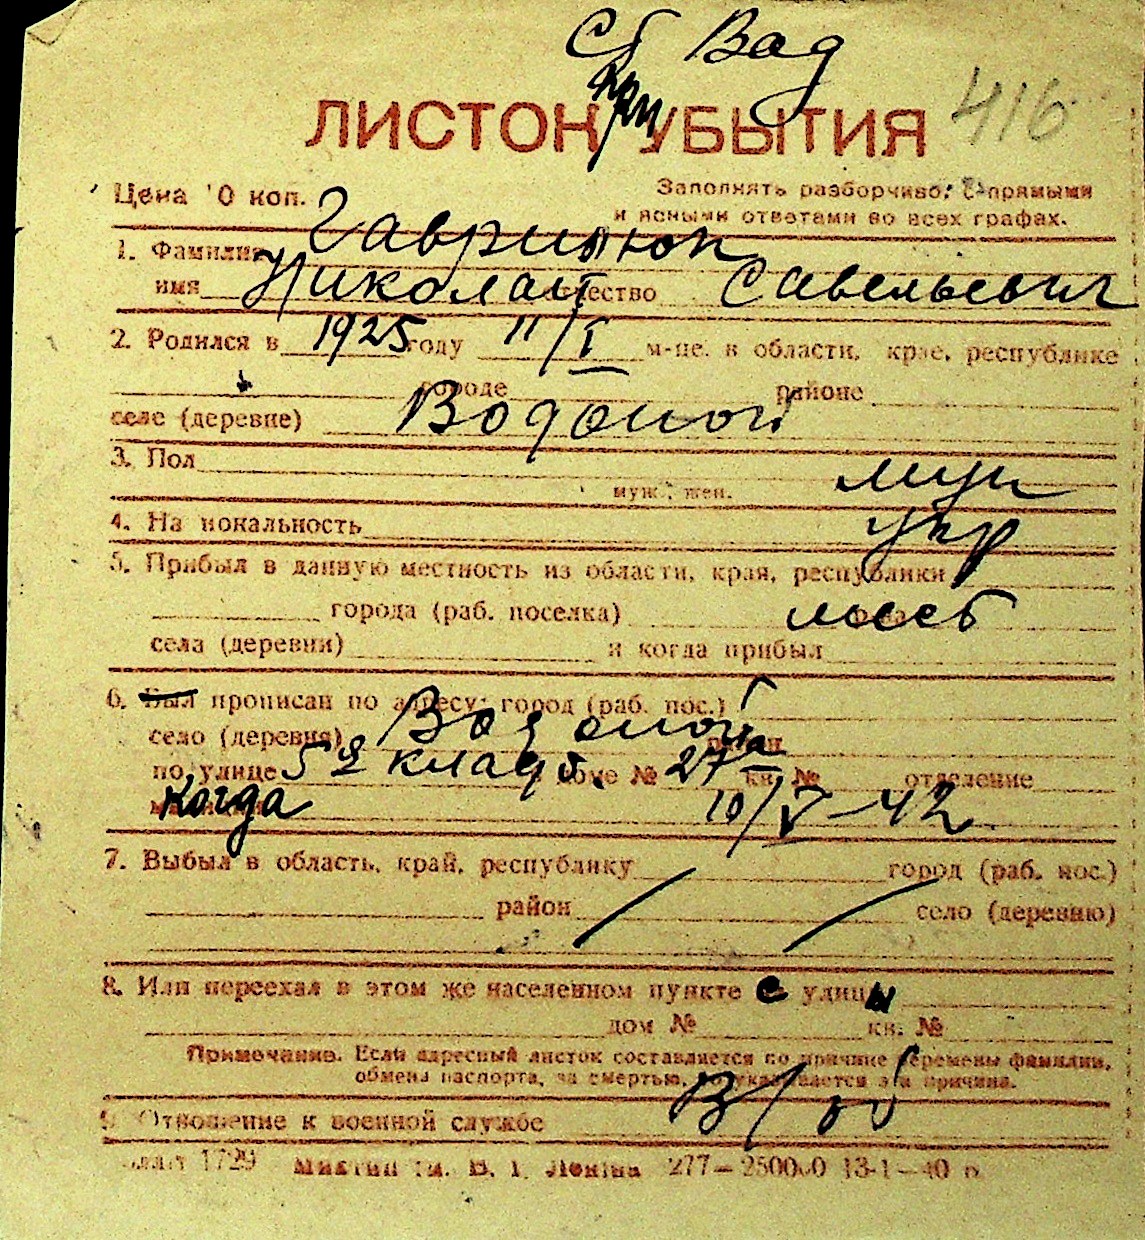 Сб Вад
при
ЛИСТОК УБЫТИЯ 416
Цена 10 коп. Заполнять разборчиво, с прямыми
и ясными ответами во всех графах.
1. Фамилия Гаврилюк
имя Николай отчество Савельевич
2. Родился в 1925 году 11/I м-це. в области, крае, республике
городе районе
селе (деревне) Водопой
3. Пол муж
муж., жен.
4. Национальность укр
5. Прибыл в данную местность из области, края, республики
города (раб. поселка)
села (деревни) и когда прибыл
6. Был прописан по адресу: город (раб. пос.)
село (деревня) Водопой район
по улице 5 я кладб. доме № 27а кв. № отделение
когда 10/V-42
7. Выбыл в область, край, республику город (раб. пос.)
район село (деревню)
8. Или переехал в этом же населенном пункте с улицы
дом № кв. №
Примечание. Если адресный листок составляется по причине перемены фамилии,
обмена паспорта, за смертью, то указывается эта причина.
9. Отношение к военной службе В/об
1729 ім. В. І. Леніна 277—250000 13-1—40 р.